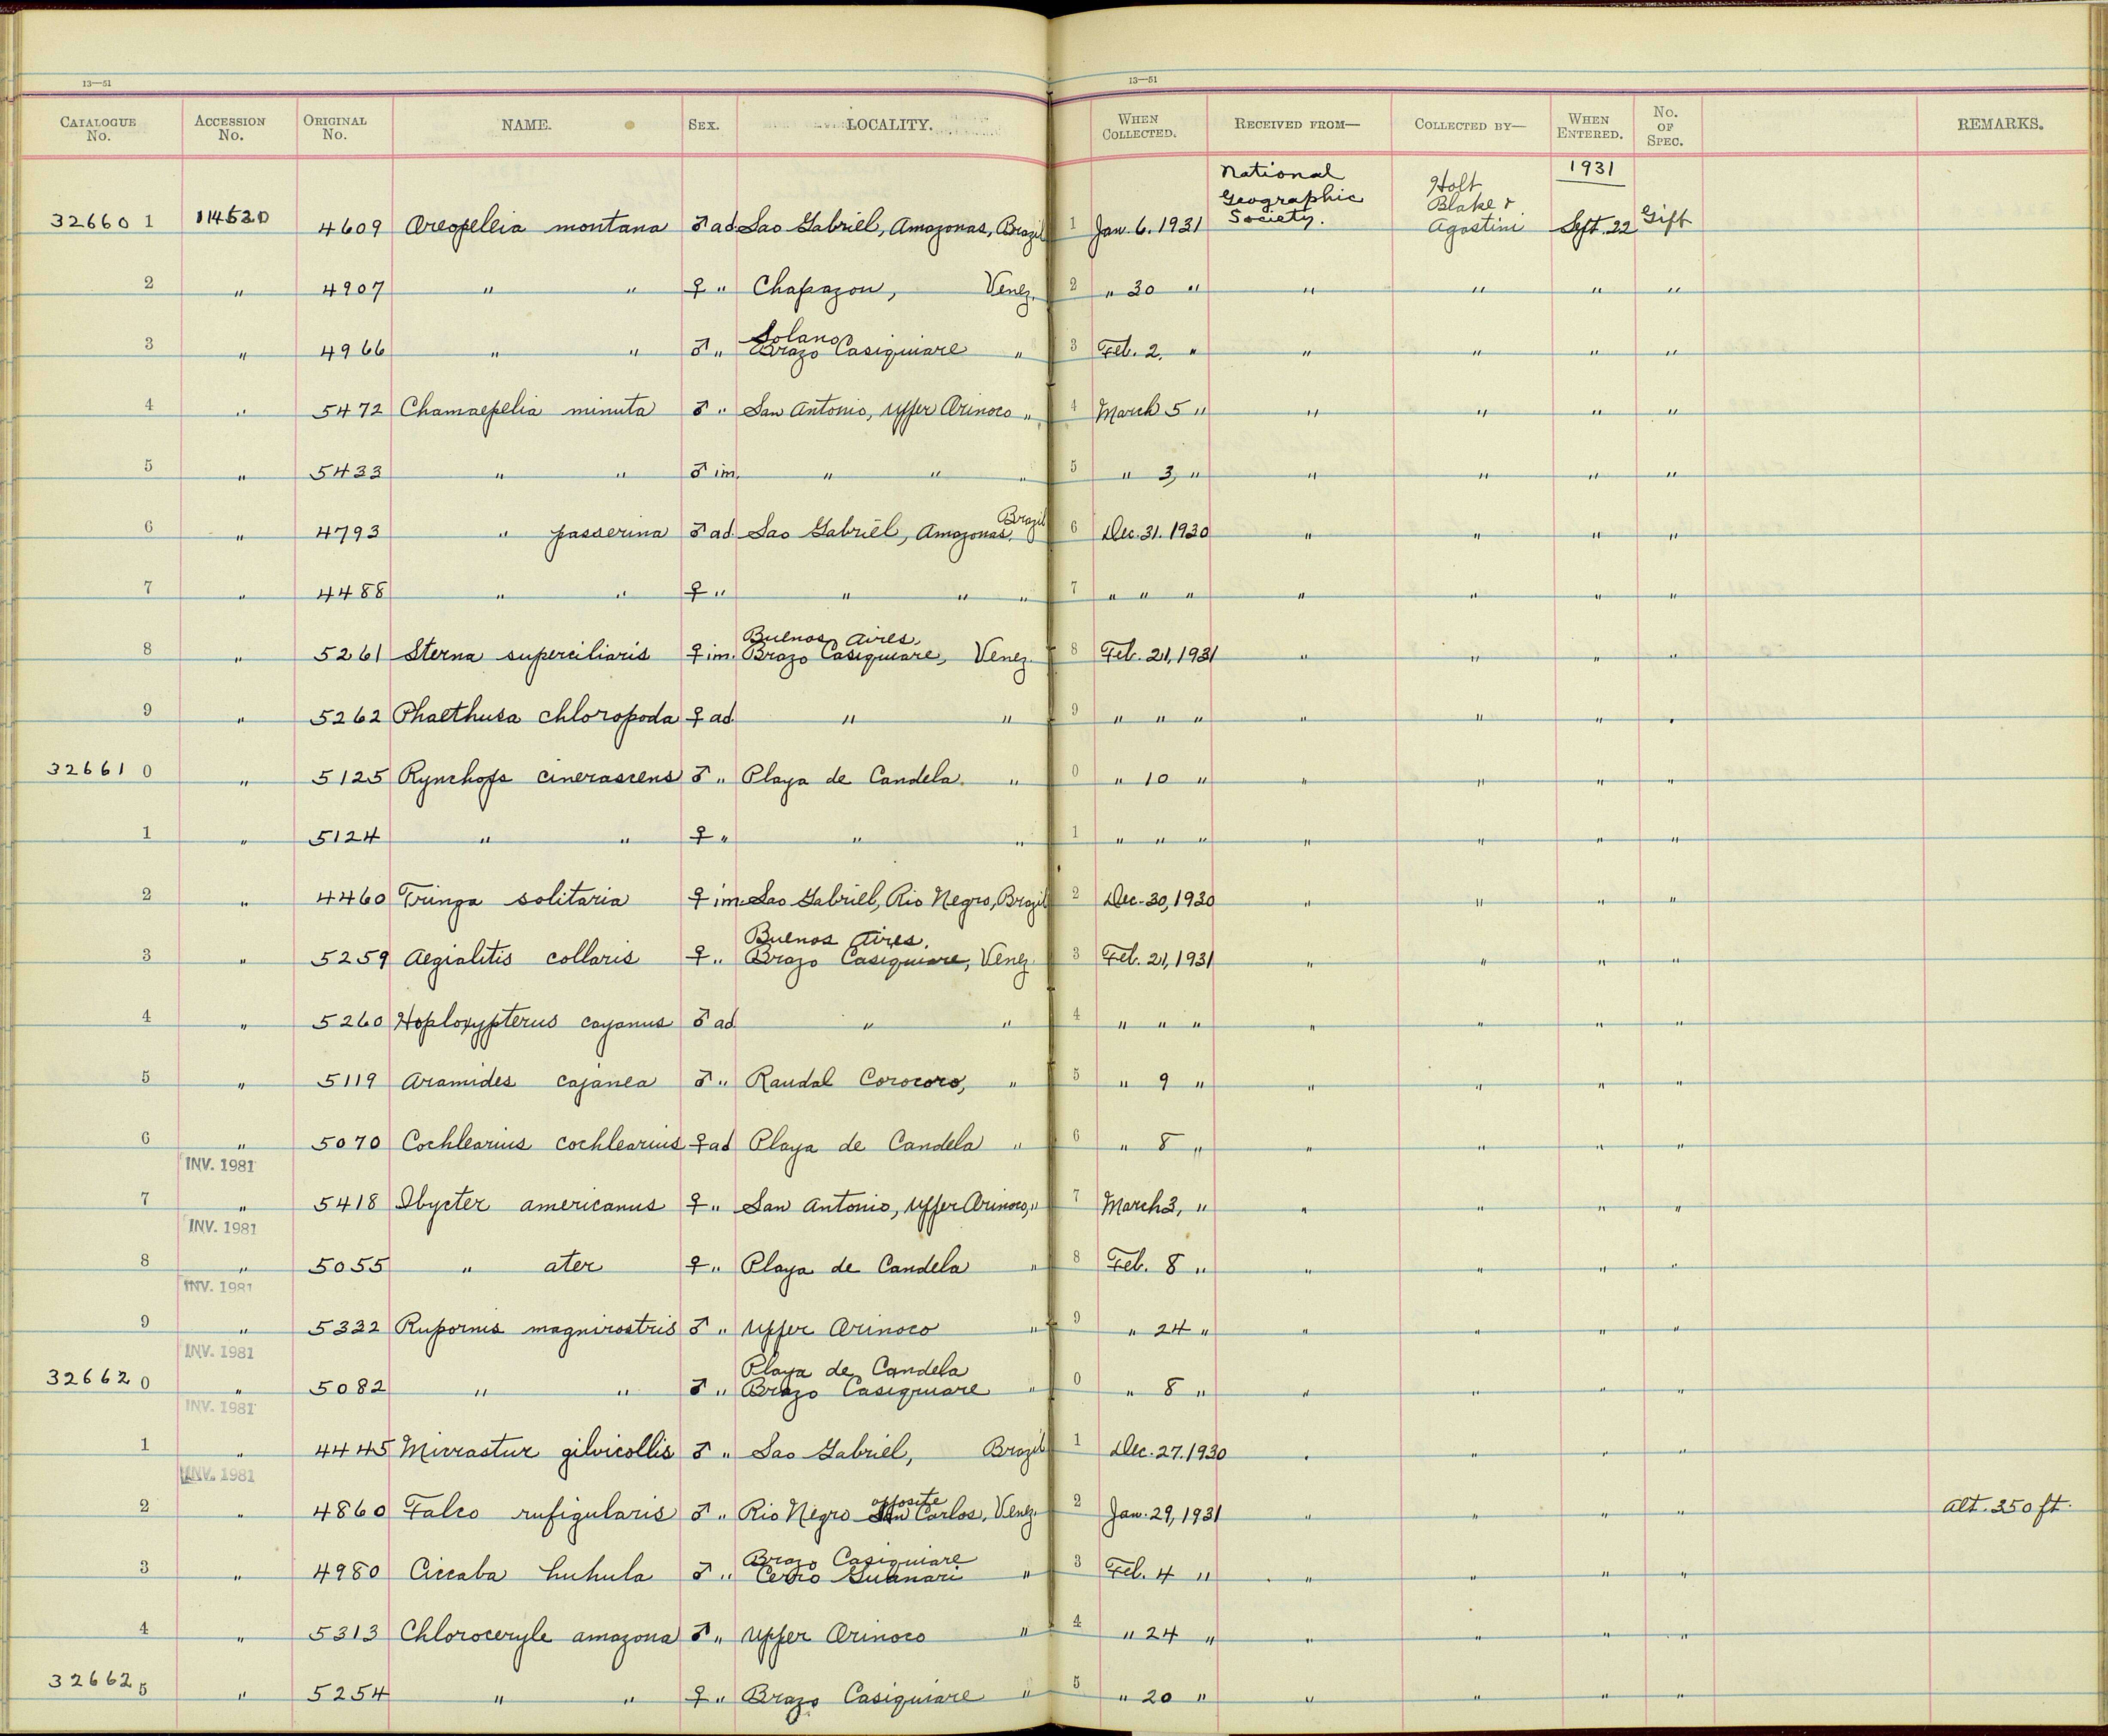 13—51 13—51
CATALOGUE No. ACCESSION No. ORIGINAL No. NAME. SEX. LOCALITY. WHEN COLLECTED. RECEIVED FROM— COLLECTED BY— WHEN ENTERED. No. OF SPEC. REMARKS.
1931
32660 1 114520 4609 Oreopeleia montana ♂ ad. Sao Gabriel, Amazonas, Brazil 1 Jan. 6. 1931 National Geographic Society. Holt Blake & Agostini Sept. 22 Gift
2 " 4907 " " ♀ " Chapazon, Venez. 2 " 30 " " " " "
3 " 4966 " " ♂ " Solano Brazo Casiquiare " 3 Feb. 2. " " " " "
4 " 5472 Chamaepelia minuta ♂ " San Antonio, Upper Orinoco " 4 March 5 " " " " "
5 " 5433 " " ♂ im. " " " 5 " 3, " " " " "
6 " 4793 " passerina ♂ ad. Sao Gabriel, Amazonas, Brazil 6 Dec. 31. 1930 " " " "
7 " 4488 " " ♀ " " " " 7 " " " " " " "
8 " 5261 Sterna superciliaris ♀ im. Buenos Aires, Brazo Casiquiare, Venez. 8 Feb. 21, 1931 " " " "
9 " 5262 Phaethusa chloropoda ♀ ad. " " 9 " " " " " " "
32661 0 " 5125 Rynchops cinerascens ♂ " Playa de Candela. " 0 " 10 " " " " "
1 " 5124 " " ♀ " " " 1 " " " " " " "
2 " 4460 Tringa solitaria ♀ im. Sao Gabriel, Rio Negro, Brazil 2 Dec. 30, 1930 " " " "
3 " 5259 Aegialitis collaris ♀ " Buenos Aires, Brazo Casiquiare, Venez. 3 Feb. 21, 1931 " " " "
4 " 5260 Hoploxypterus cayanus ♂ ad. " " 4 " " " " " " "
5 " 5119 Aramides cajanea ♂ " Raudal Corocoro, " 5 " 9 " " " " "
6 " 5070 Cochlearius cochlearius ♀ ad Playa de Candela " 6 " 8 " " " " "
INV. 1981
7 " 5418 Ibycter americanus ♀ " San Antonio, Upper Orinoco, " 7 March 3, " " " " "
INV. 1981
8 " 5055 " ater ♀ " Playa de Candela " 8 Feb. 8 " " " " "
INV. 1981
9 " 5332 Rupornis magnirostris ♂ " Upper Orinoco " 9 " 24 " " " " "
INV. 1981
32662 0 " 5082 " " ♂ " Playa de Candela Brazo Casiquiare " 0 " 8 " " " " "
INV. 1981
1 " 4445 Micrastur gilvicollis ♂ " Sao Gabriel, Brazil 1 Dec. 27. 1930 " " " "
INV. 1981
2 " 4860 Falco rufigularis ♂ " Rio Negro opposite San Carlos, Venez. 2 Jan. 29, 1931 " " " " alt. 350 ft.
3 " 4980 Ciccaba huhula ♂ " Brazo Casiquiare Cerro Guanari " 3 Feb. 4 " " " " "
4 " 5313 Chloroceryle amazona ♂ " Upper Orinoco " 4 " 24 " " " " "
32662 5 " 5254 " " ♀ " Brazo Casiquiare " 5 " 20 " " " " "